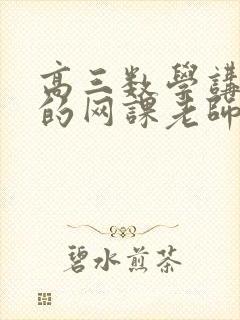 高三数学講
的网課老師
碧水煎茶